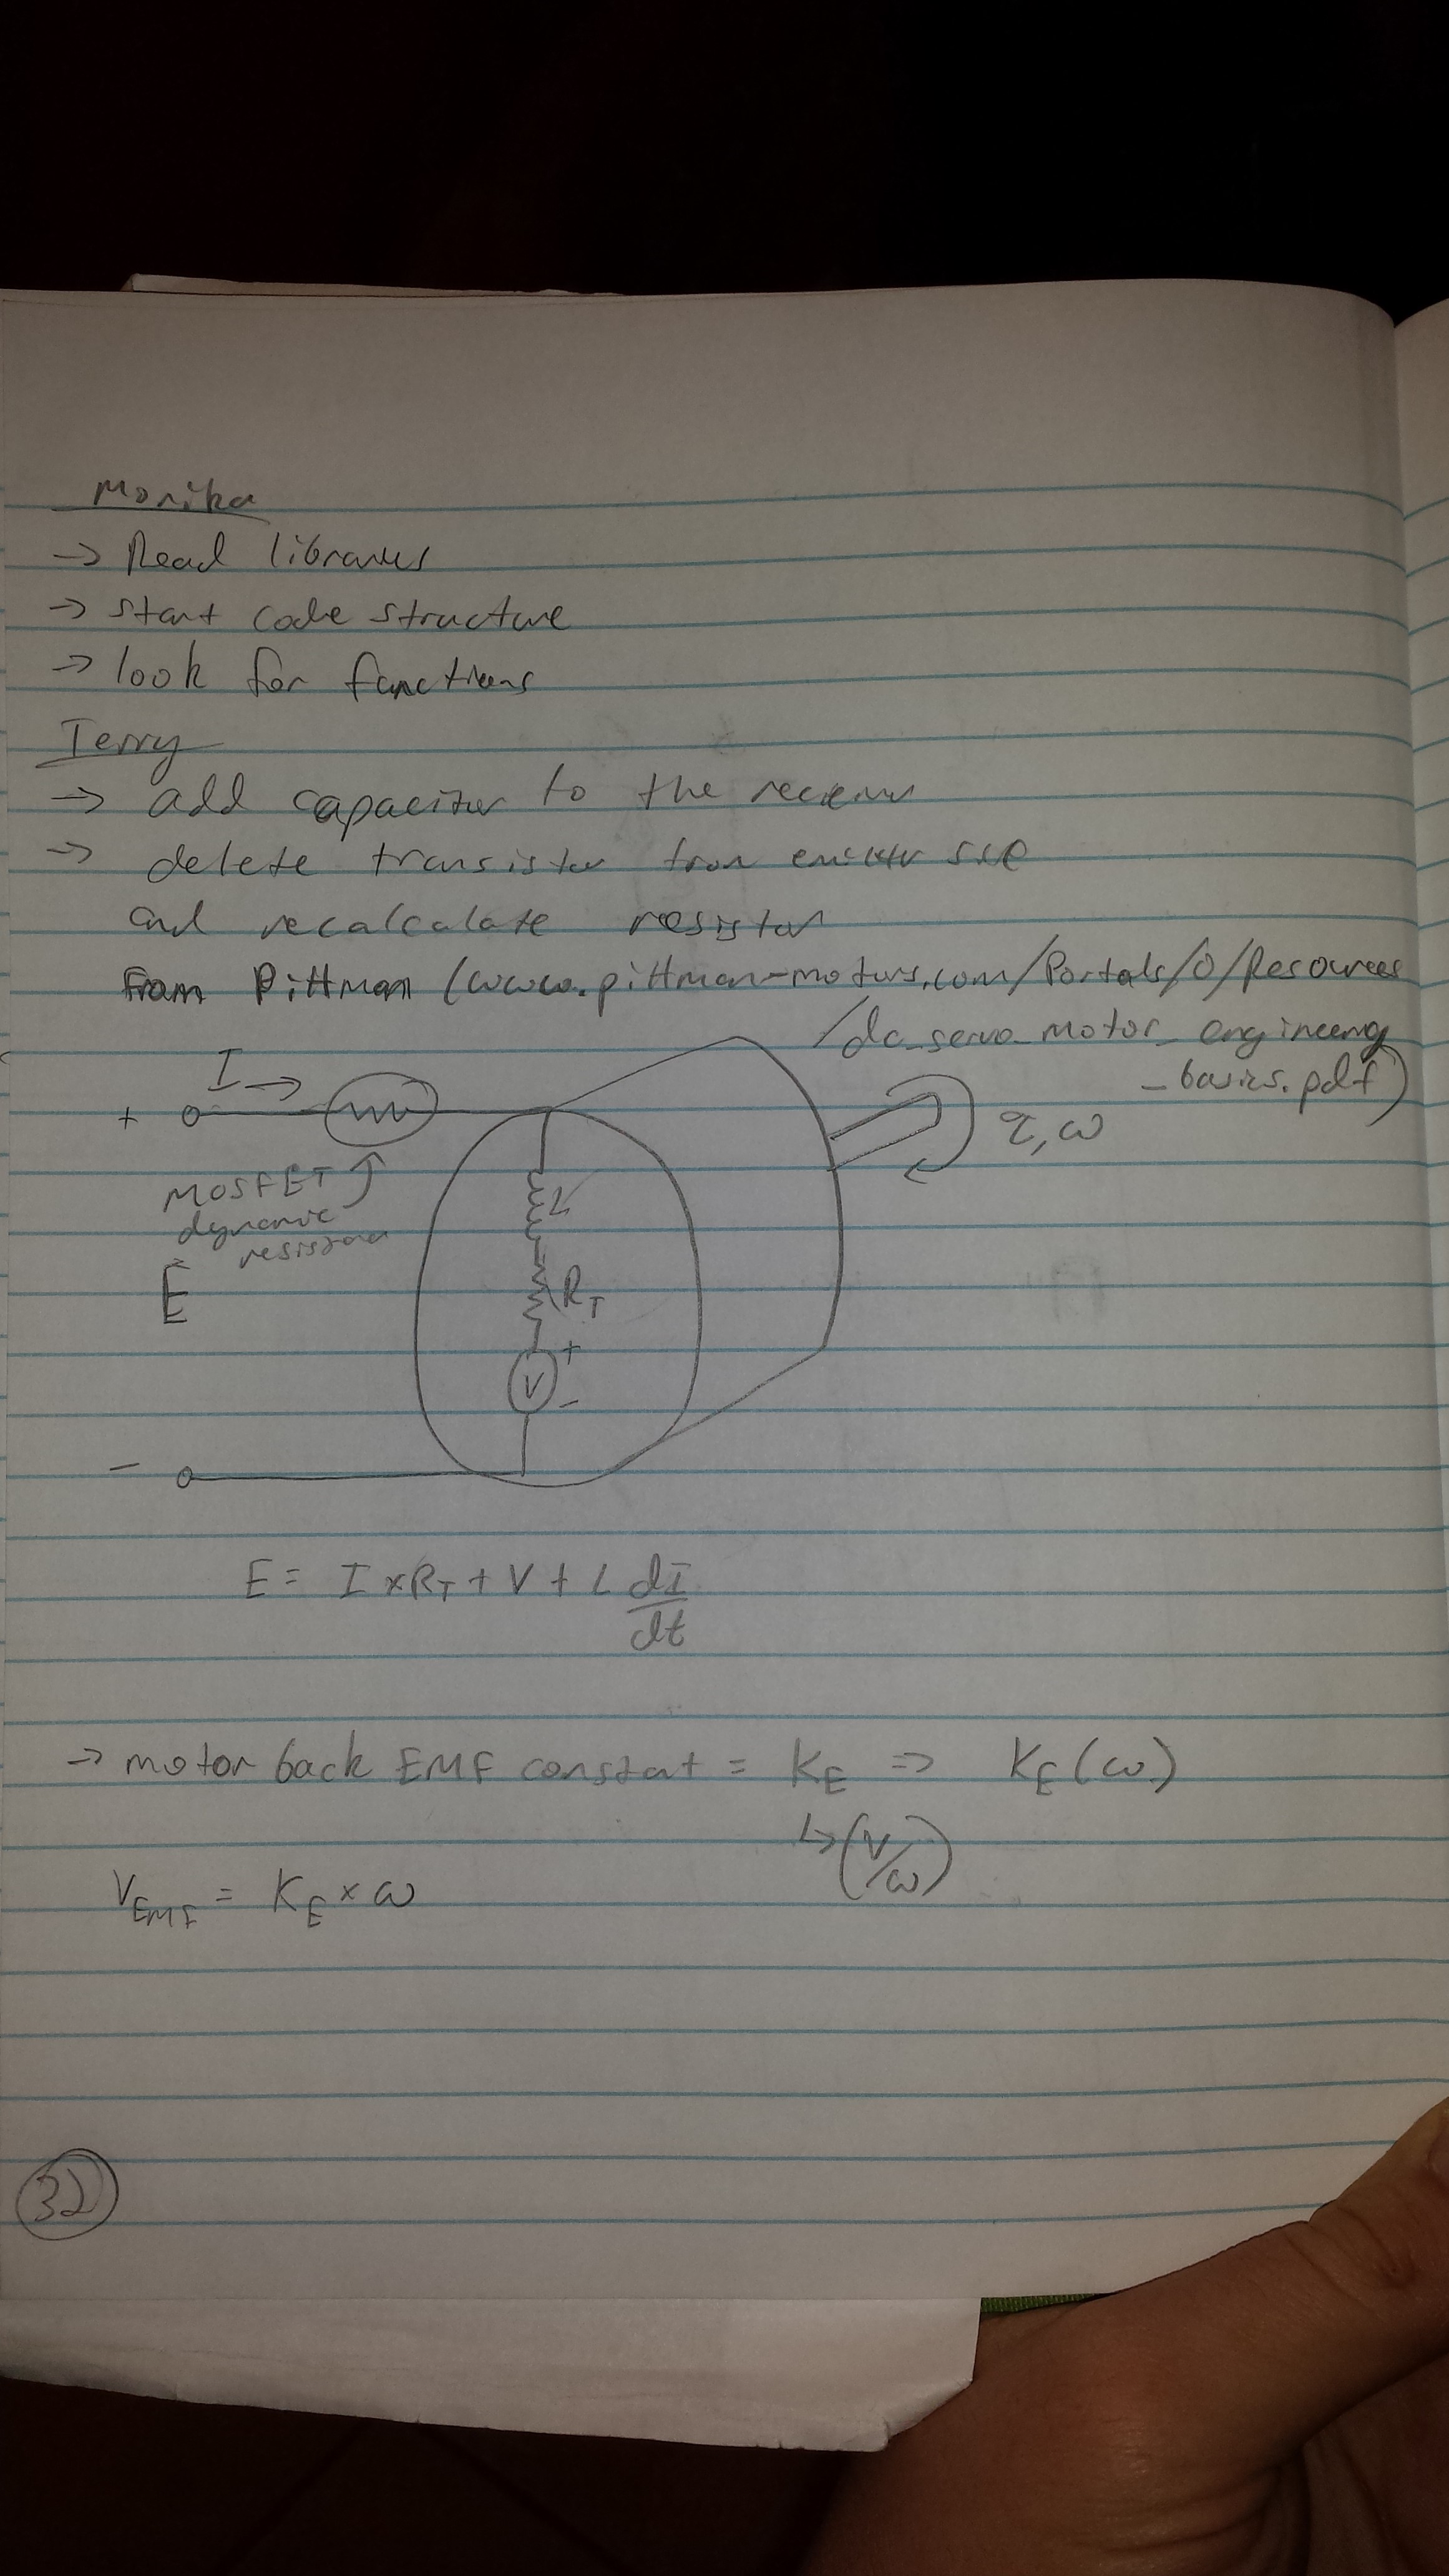 Monika
→ Read libraries
→ start code structure
→ look for functions
Terry
→ add capacitor to the receiver
→ delete transistor from emitter side
and recalculate resistor
From Pittman (www.pittman-motors.com/Portals/0/Resources
/dc_servo_motor_engineering
_basics.pdf)
I →
+
τ, ω
MOSFET
dynamic
resistance
L
E
R_T
+
V
-
-
E = I × R_T + V + L dI/dt
→ motor back EMF constant = K_E => K_E(ω)
↳ (V/ω)
V_EMF = K_E × ω
32